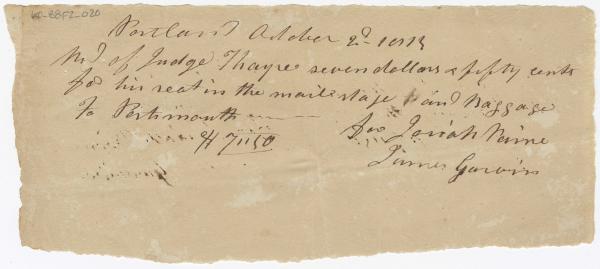 KP-88F2-020
Portland October 2d
Rd of Judge Thayre seven dollars & fifty cents
for his seat in the mail stage and Baggage
To Portsmouth
for Josiah Paine
$ 7"50
James